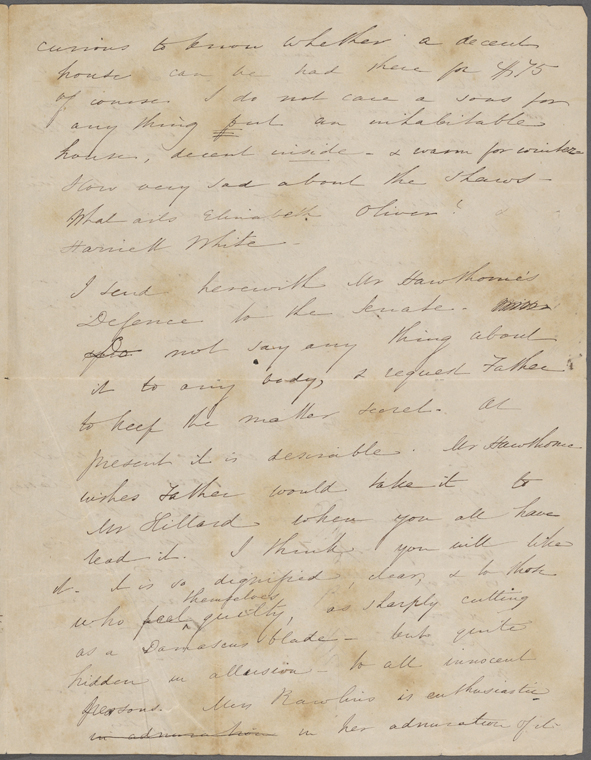 curious to know whether a decent
house can be had there for $75
Of course I do not care a sous for
any thing but an inhabitable
house, decent inside - & warm for winter
How very sad about the Shaws -
What ails Elizabeth Oliver?
Harriett White -
I send herewith Mr Hawthorne's
Defence to the Senate -
Do not say any thing about
it to any body, & request Father
to keep the matter secret. At
present it is desirable. Mr Hawthorne
wishes Father would take it to
Mr Hillard when you all have
read it. I think you will like
it - It is so dignified, clear, & to those
who feel themselves guilty, as sharply cutting
as a Damascus blade - but quite
hidden in allusion - to all innocent
persons. Miss Rawlins is enthusiastic
in admiration in her admiration of it -